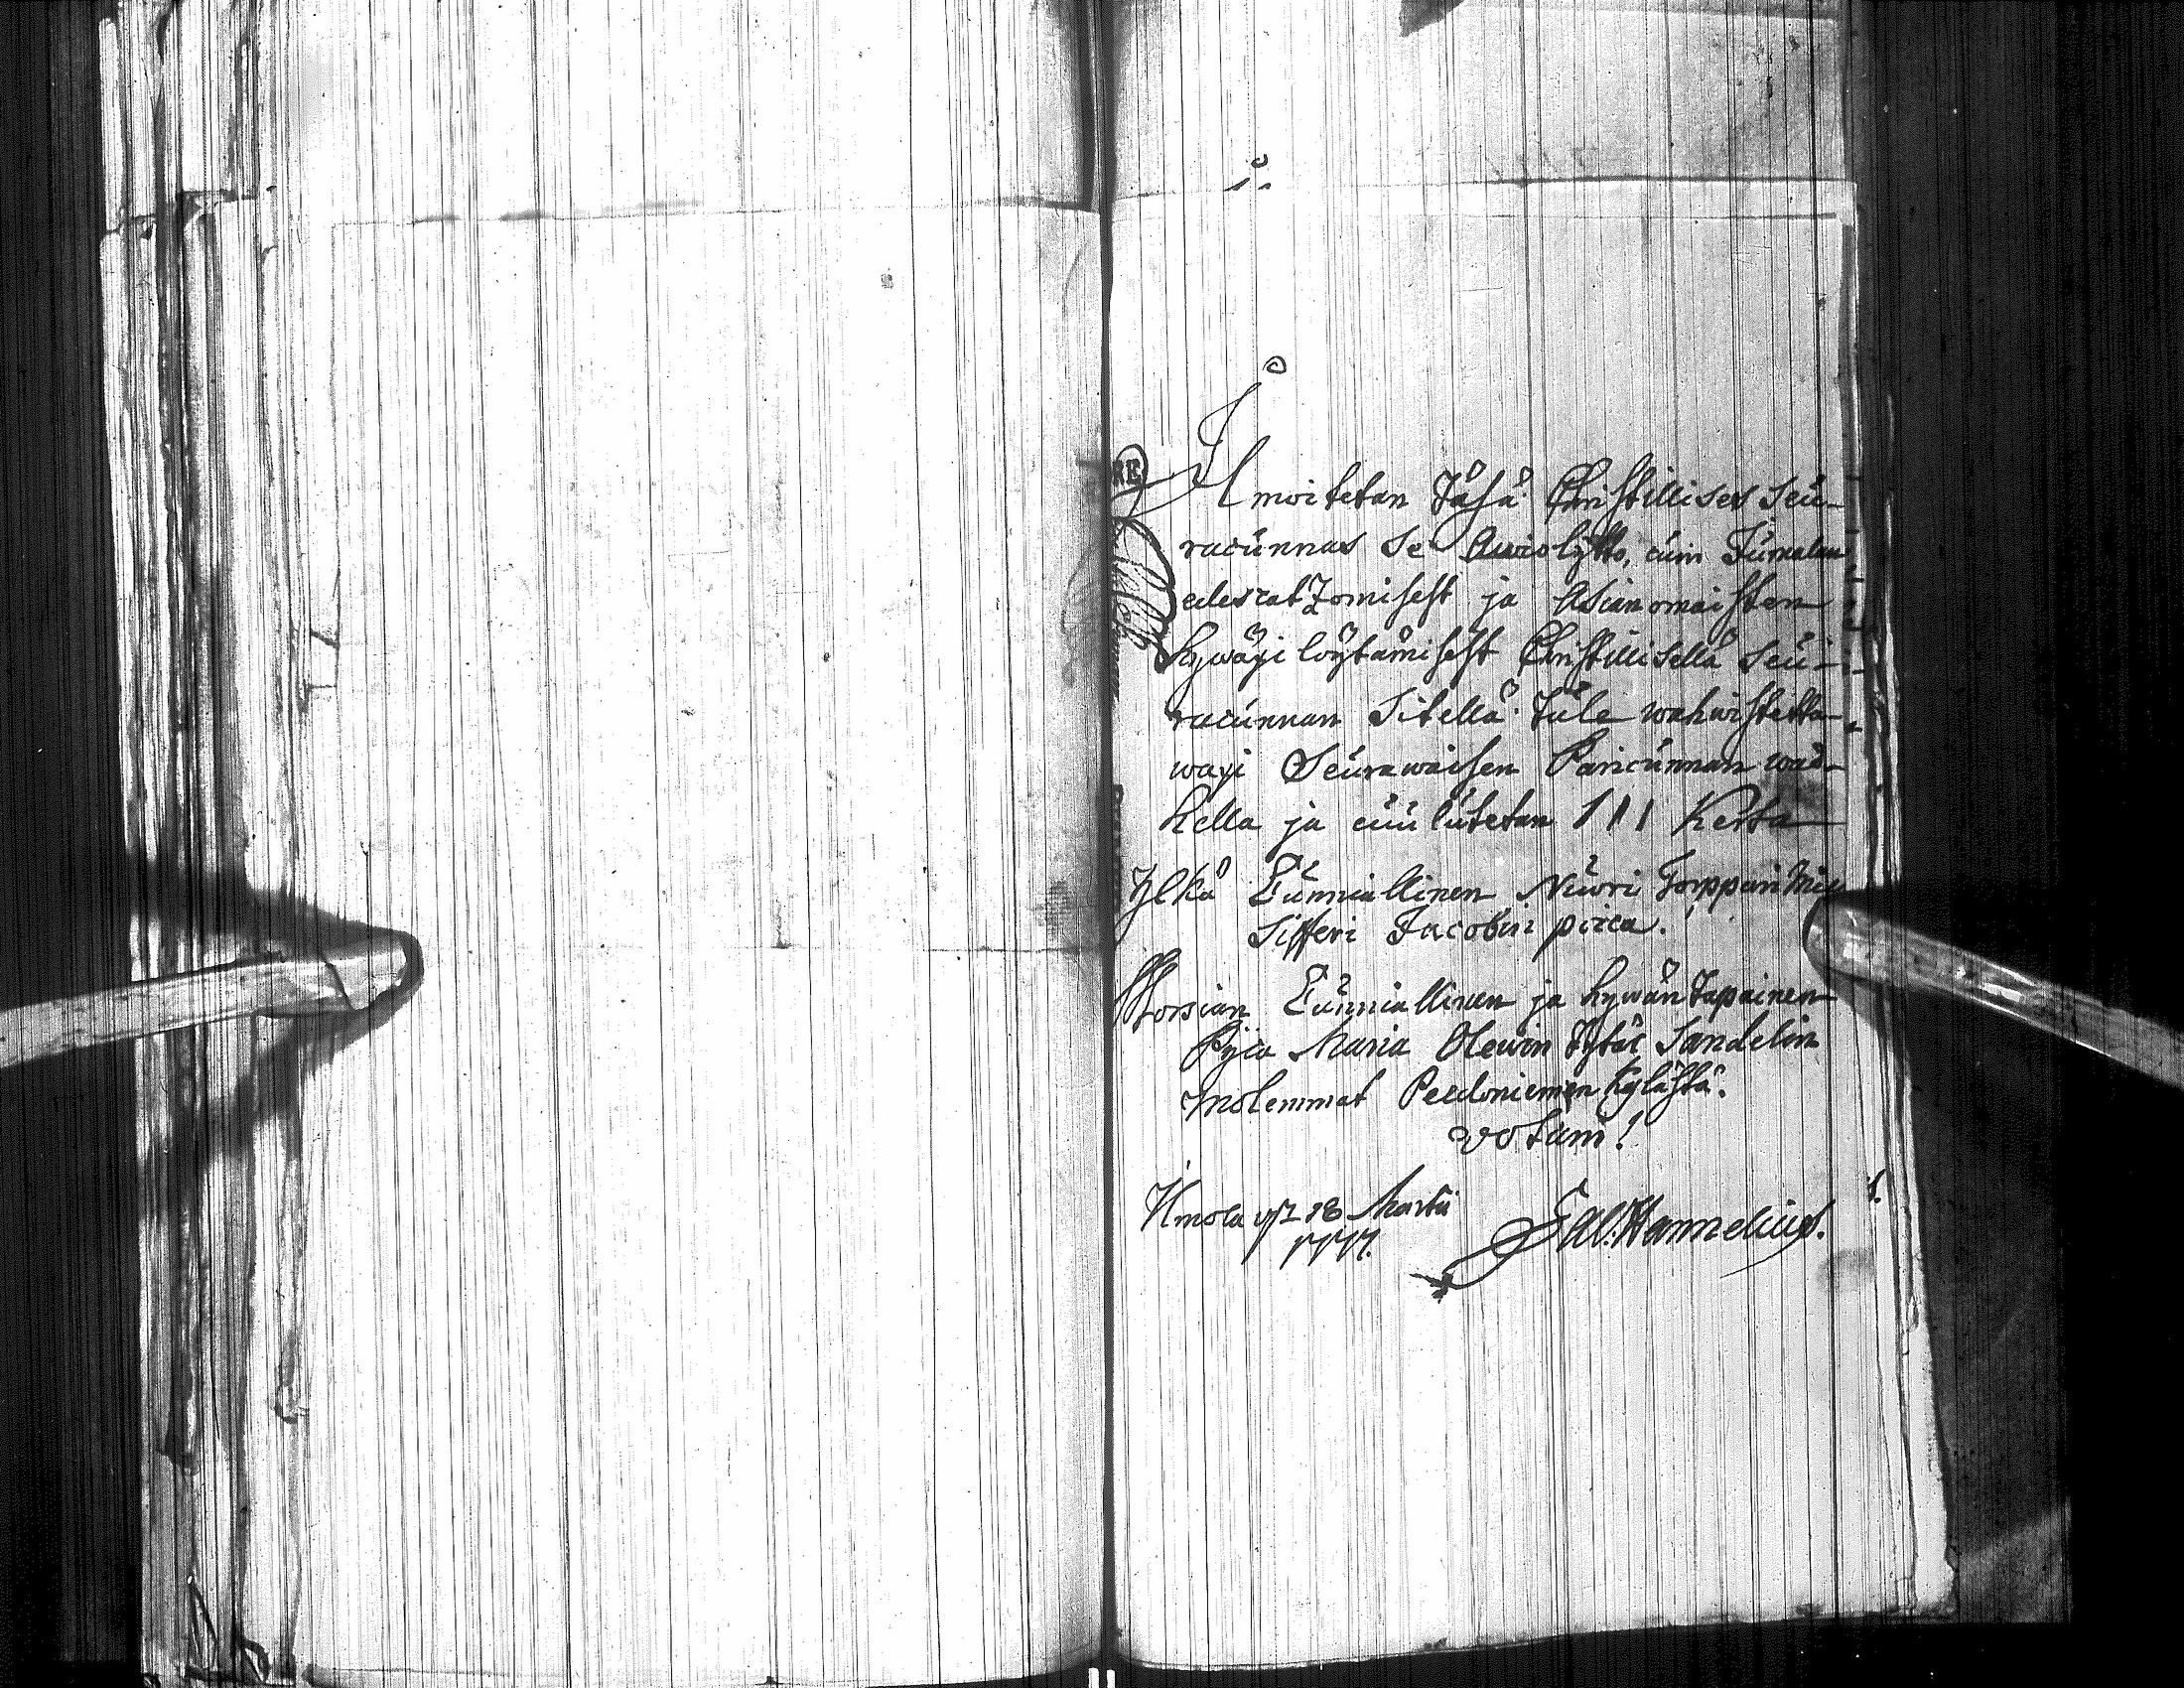 Ilmoitetan täsä Christillises seu-
racunnas se Awiolijtto, cuin Jumalan
edescatzomisest ja Asianomaisten
hywäxi löytämisest Christillisellä seu-
racunnan sitellä tule wahwistetta-
waxi Seurawaisen Paricunnan wäd-
hella ja cuulutetan III Kerta
Ylkä Cunniallinen Nuori Torppari Mies
Sifferi Jacobin poica.
Morsian Cunniallinen ja hywän tapainen
Pijca Maria Olewin tytär Sandelin
molemmat Peldoniemen Kylästä.
Votum!
Ilmola 18 Martii
1777.
Hannelius.